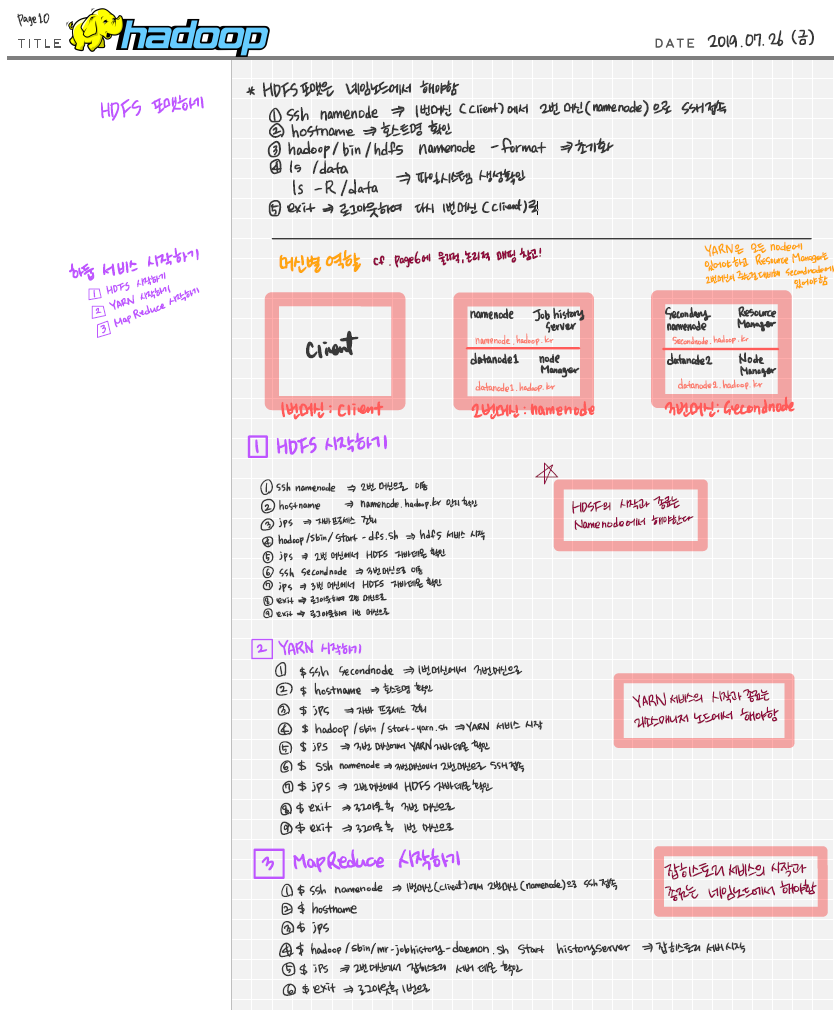 Page 10
TITLE hadoop
DATE 2019.07.26 (금)
HDFS 포맷하기
* HDFS 포맷은 네임노드에서 해야함
① ssh namenode ⇒ 1번머신 (client)에서 2번 머신(namenode)으로 SSH 접속
② hostname ⇒ 호스트명 확인
③ hadoop/bin/hdfs namenode -format ⇒ 초기화
④ ls /data
ls -R /data ⇒ 파일시스템 생성확인
⑤ exit ⇒ 로그아웃하여 다시 1번머신 (client)로
하둡 서비스 시작하기
1 HDFS 시작하기
2 YARN 시작하기
3 MapReduce 시작하기
머신별 역할 cf. page6에 물리적, 논리적 매핑 참고!
YARN은 모든 node에
있어야하고 Resource Manager는
있어야함
client
1번머신: client
namenode Job history Server
namenode.hadoop.kr
datanode1 node Manager
datanode1.hadoop.kr
2번머신: namenode
Secondary namenode Resource Manager
Secondnode.hadoop.kr
datanode2 Node Manager
datanode2.hadoop.kr
3번머신: Secondnode
1 HDFS 시작하기
① ssh namenode ⇒ 2번 머신으로 이동
② hostname ⇒ namenode.hadoop.kr 인지 확인
③ jps ⇒ 자바프로세스 조회
④ hadoop/sbin/start-dfs.sh ⇒ hdfs 서비스 시작
⑤ jps ⇒ 2번 머신에서 HDFS 자바데몬 확인
⑥ ssh secondnode ⇒ 3번머신으로 이동
⑦ jps ⇒ 3번 머신에서 HDFS 자바데몬 확인
⑧ exit ⇒ 로그아웃하여 2번 머신으로
⑨ exit ⇒ 로그아웃하여 1번 머신으로
☆
HDSF의 시작과 종료는
Namenode에서 해야한다
2 YARN 시작하기
① $ ssh secondnode ⇒ 1번머신에서 3번머신으로
② $ hostname ⇒ 호스트명 확인
③ $ jps ⇒ 자바 프로세스 조회
④ $ hadoop/sbin/start-yarn.sh ⇒ YARN 서비스 시작
⑤ $ jps ⇒ 3번 머신에서 YARN 자바 데몬 확인
⑥ $ ssh namenode ⇒ 3번머신에서 2번머신으로 SSH 접속
⑦ $ jps ⇒ 2번머신에서 HDFS 자바데몬 확인
⑧ $ exit ⇒ 로그아웃 후 3번 머신으로
⑨ $ exit ⇒ 로그아웃 후 1번 머신으로
YARN 서비스의 시작과 종료는
리소스매니저 노드에서 해야함
3 MapReduce 시작하기
① $ ssh namenode ⇒ 1번머신(client)에서 2번머신(namenode)으로 SSh 접속
② $ hostname
③ $ jps
④ $ hadoop/sbin/mr-jobhistory-daemon.sh start historyserver ⇒ 잡히스토리 서버시작
⑤ $ jps ⇒ 2번 머신에서 잡히스토리 서버 데몬 확인
⑥ $ exit ⇒ 로그아웃후 1번으로
잡히스토리 서비스의 시작과
종료는 네임노드에서 해야함